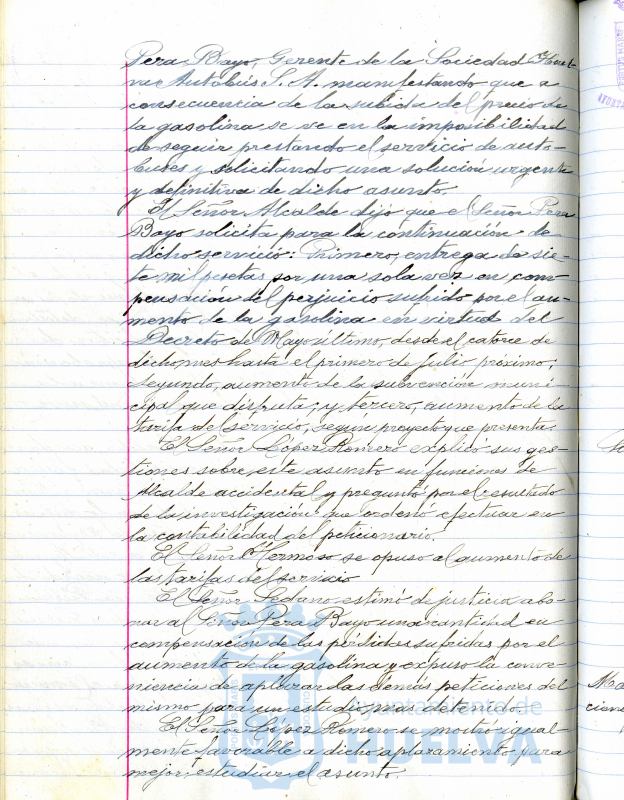 Pera Bayo, Gerente de la Sociedad
Autobús S. A. manifestando que a
consecuencia de la subida del precio de
la gasolina se ve en la imposibilidad
de seguir prestando el servicio de auto-
buses y solicitando una solución urgente
y definitiva de dicho asunto.
El Señor Alcalde dijo que el Señor Pera
Bayo solicita para la continuación de
dicho servicio: Primero, entrega de sie-
te mil pesetas por una sola vez en com-
pensación del perjuicio sufrido por el au-
mento de la gasolina en virtud del
Decreto de Mayo último, desde el catorce de
dicho mes hasta el primero de Julio próximo;
Segundo, aumento de la subvención muni-
cipal que disfruta; y tercero, aumento de la
tarifa del servicio, según proyecto que presenta.
El Señor López Romero explicó sus ges-
tiones sobre este asunto en funciones de
Alcalde accidental y preguntó por el resultado
de la investigación que ordenó efectuar en
la contabilidad del peticionario.
El Señor Hermoso se opuso al aumento de
las tarifas del servicio
El Señor Sedano estimó de justicia abo-
nar al Señor Pera Bayo una cantidad en
compensación de las pérdidas sufridas por el
aumento de la gasolina y expuso la conve-
niencia de aplazar las demás peticiones del
mismo para un estudio mas detenido.
El Señor López Romero se mostró igual-
mente favorable a dicho aplazamiento para
mejor estudiar el asunto.
Ayuntamiento de
HUELVA